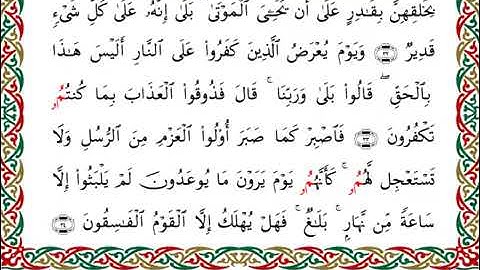 يَخْلُقِهِنَّ بِقَـٰدِرٍ عَلَىٰٓ أَن يُحْـِۧىَ ٱلْمَوْتَىٰ بَلَىٰٓ إِنَّهُۥ عَلَىٰ كُلِّ شَىْءٍ
قَدِيرٌ ٣٢ وَيَوْمَ يُعْرَضُ ٱلَّذِينَ كَفَرُوا۟ عَلَى ٱلنَّارِ أَلَيْسَ هَـٰذَا
بِٱلْحَقِّ ۖ قَالُوا۟ بَلَىٰ وَرَبِّنَا ۚ قَالَ فَذُوقُوا۟ ٱلْعَذَابَ بِمَا كُنتُمُۥ
تَكْفُرُونَ ٣٣ فَٱصْبِرْ كَمَا صَبَرَ أُو۟لُوا۟ ٱلْعَزْمِ مِنَ ٱلرُّسُلِ وَلَا
تَسْتَعْجِل لَّهُمُۥ ۚ كَأَنَّهُمُۥ يَوْمَ يَرَوْنَ مَا يُوعَدُونَ لَمْ يَلْبَثُوٓا۟ إِلَّا
سَاعَةً مِّن نَّهَارٍ ۚ بَلَـٰغٌ ۚ فَهَلْ يُهْلَكُ إِلَّا ٱلْقَوْمُ ٱلْفَـٰسِقُونَ ٣٤